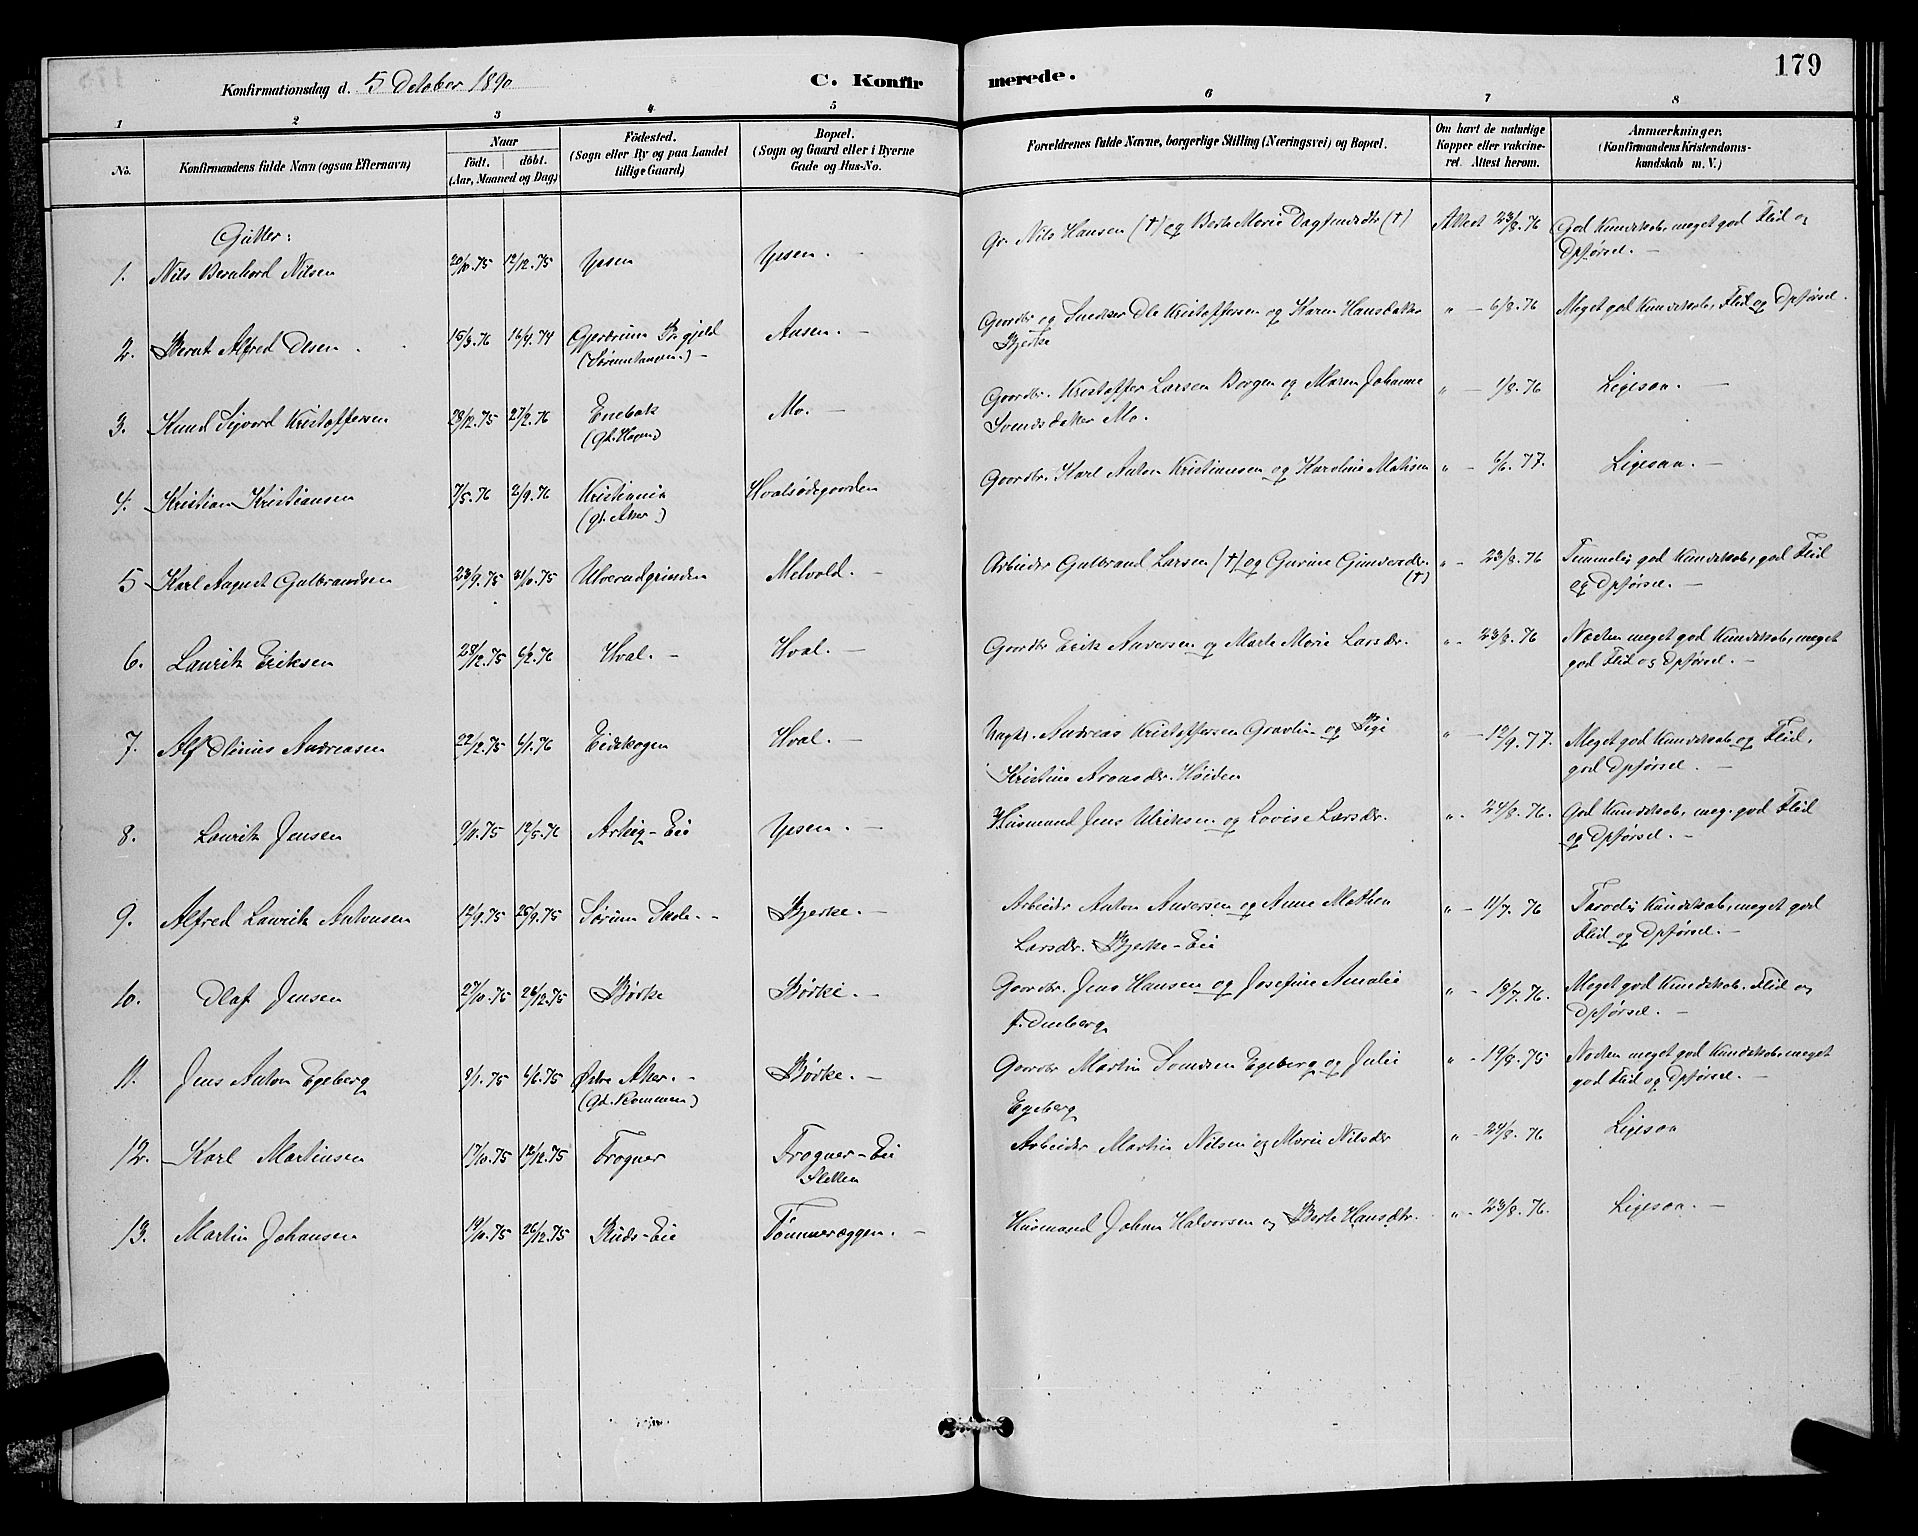 179
Konfirmationsdag d. 5 October 1890
C. Konfirmerede.
1 2 3 4 5 6 7 8
No. Konfirmandens fulde Navn (ogsaa Efternavn)
Naar födt. döbt. (Aar, Maaned og Dag)
Födested. (Sogn eller By og paa Landet tillige Gaard)
Bopæl. (Sogn og Gaard eller i Byerne Gade og Hus-No.
Forældrenes fulde Navne, borgerlige Stilling (Næringsvei) og Bopæl.
Om havt de naturlige Kopper eller vakcineret. Attest herom.
Anmærkninger. (Konfirmandens Kristendomskundskab m. V.)
Gutter:
1. Nils Bernhard Nilsen 20/10.75 12/12.75 Ypsen Ypsen. – Gr. Nils Hansen (†) og Berte Marie Dagfinsdtr (†) Attest 23/8.76 God Kundskab, meget god Flid og
Opførsel. –
2. Bernt Alfred Olsen 15/3.76 16/4.74 Gjerdrum Prgjeld Ausen. – Gaardbr og Snedker Ole Kristoffersen og Karen Hansdatter " – 6/8.76 Meget god Kundskab, Flid og Opførsel.
Bjerke
3. Knud Sigvard Kristoffersen 28/12.75 27/2.76 Enebak Mo. – Gaardbr. Kristoffer Larsen Borgen og Maren Johanne " – 1/8.76 Ligesaa. –
(gd. Hagen) Svendsdatter Mo.
4. Kristian Kristiansen 7/5.76 2/9.76 Kristiania Hvalsödegaarden Gaardbr. Karl Anton Kristiansen og Karoline Matisen " – 6/6.77. Ligesaa. –
(gl. Aker)
5 Karl August Gulbrandsen 23/9.75 31/10.75 Ulverudgrinden Melvold. – Arbeider Gulbrand Larsen (†) og Gurine Gundersdr. (†) " – 23/8.76 Temmelig god Kundskab, god Flid
og Opførsel. –
6. Laurits Eriksen 28/12.75 6/2.76 Hval. – Hval. – Gaardbr Erik Andersen og Marte Marie Larsdr. " – 23/8.76 Næsten meget god Kundskab, meget
god Flid og Opførsel. –
7. Alf Andreasen 22/12.75 6/1.76 Eidskogen Hval. – Andreas Kristoffersen og Pige " – 12/9.77. Meget god Kundskab og Flid,
Kristine Aronsdr. Høiden god Opførsel. –
8. Laurits Jensen 9/11.75 12/3.76 Asbig-Eie Ypsen. – Husmand Jens Ulriksen og Lovise Larsdr. " – 24/8.76. God Kundskab, meg. god Flid
og Opførsel. –
9. Alfred Laurits Antonsen 12/9.75 25/9.75 Sørum Sogn. – Bjerke. – Arbeider Anton Andersen og Anne Mathea " – 11/7.76 Faadig Kundskab, meget god
Larsdr. Bjerke-Eie Flid og Opførsel. –
10. Olaf Jensen 27/10.75 26/12.75 Bødke Bödke. – Gaardbr. Jens Hansen og Josefine Amalie " – 18/7.76. Meget god Kundskab. Flid og
Opførsel. –
11. Jens Anton Egeberg 9/1.75 6/6.75 Østre Aker. – Bødke. – Gaardbr Martin Svendsen Egeberg og Julie " – 19/8.75 Næsten meget god Kundskab, meget
(gd. Rommen) Egeberg god Flid og Opførsel. –
12. Karl Martinsen 17/10.75 12/12.75 Frogner Frogner-Eie Arbeider Martin Nilsen og Marie Nilsdr " – 24/8.76 Ligesaa
Sletten
13. Martin Johansen 19/10.75 26/12.75 Ruds-Eie Tømmeræggen. – Husmand Johan Halvorsen og Berte Hansdtr. " – 23/8.76. Ligesaa. –